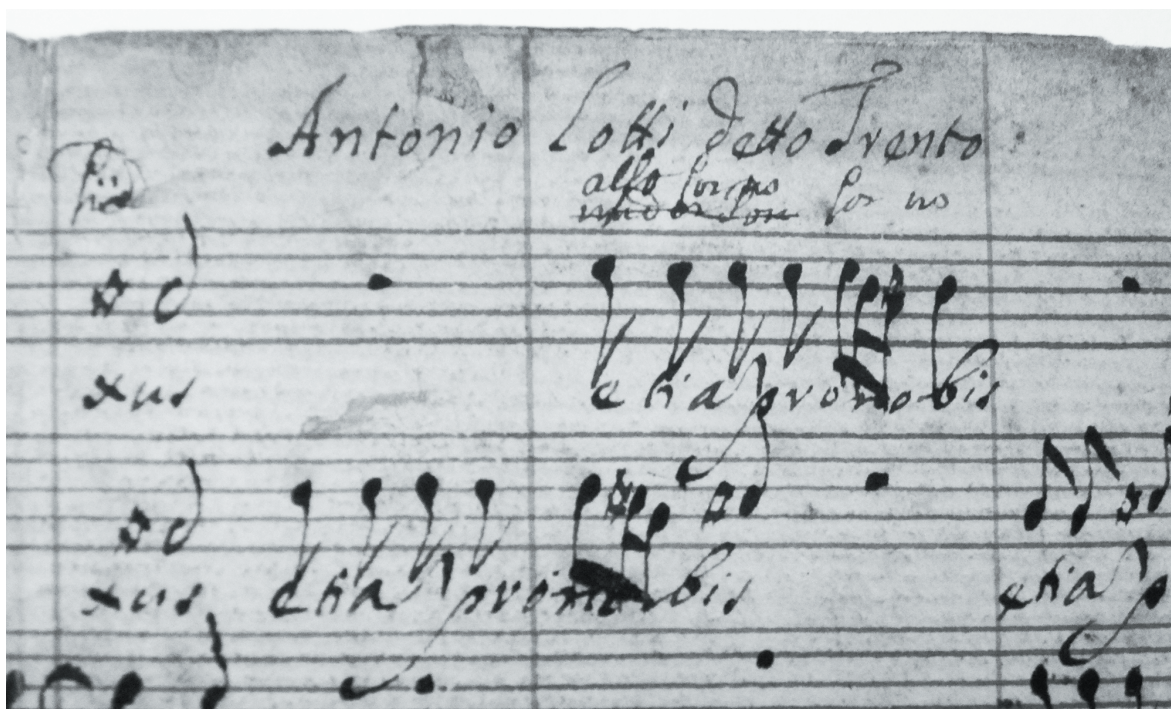 Antonio Lotti detto Trento
also for us
for us
xus
etia pro nobis
xus etia pro nobis etia p